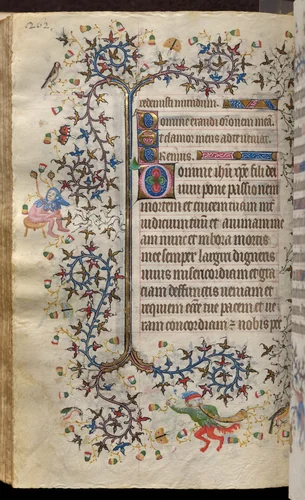 redemisti mundum.
Domine exaudi orõnem meã.
Et clamor meus ad te veniat.
Oremus.
Domine ihũ xp̃e fili dei
vivi pone passionem
mortem et crucem tuam int̃
iudicium tuũ et animam me
am nunc et in hora mortis
mee semper largiri digneris
vivis misericordiam et gra
ciam deffunctis veniam et
requiem ecc̃e tue pacem et ve
ram concordiam ⁊ nobis pec